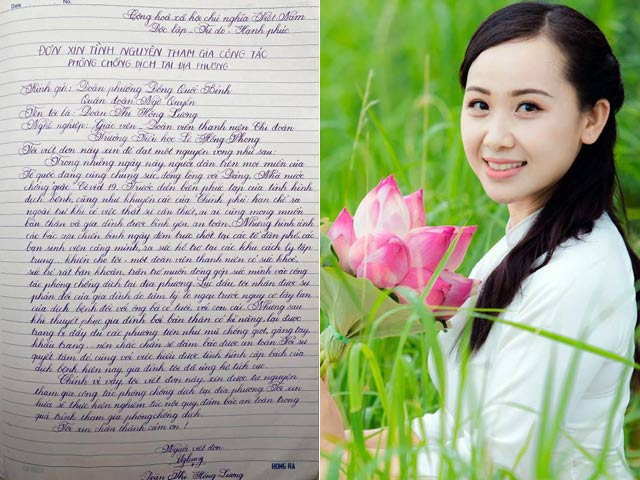 Date No.
Cộng hoà xã hội chủ nghĩa Việt Nam
Độc lập - Tự do - Hạnh phúc
ĐƠN XIN TÌNH NGUYỆN THAM GIA CÔNG TÁC
PHÒNG CHỐNG DỊCH TẠI ĐỊA PHƯƠNG
Kính gửi: Đoàn phường Đồng Quốc Bình
Quận đoàn Ngô Quyền
Tên tôi là: Đoàn Thị Hồng Lương
Nghề nghiệp: Giáo viên - Đoàn viên thanh niên Chi đoàn
Trường Tiểu học Lê Hồng Phong
Tôi viết đơn này xin đề đạt một nguyện vọng như sau:
Trong những ngày này, người dân trên mọi miền của
Tổ quốc đang cùng chung sức, đồng lòng với Đảng, Nhà nước
chống giặc Covid 19. Trước diễn biến phức tạp của tình hình
dịch bệnh, cũng như khuyến cáo của Chính phủ: hạn chế ra
ngoài trừ khi có việc thật sự cần thiết, ai ai cũng mong muốn
bản thân và gia đình được bình yên, an toàn. Những hình ảnh
các bác cựu chiến binh ngày đêm trực chốt tại các tổ dân phố, các
bạn sinh viên cùng mình, ra sức hỗ trợ tại các khu cách ly tập
trung... khiến cho tôi - một đoàn viên thanh niên có sức khoẻ,
sức trẻ rất băn khoăn, trăn trở muốn đóng góp sức mình vào công
tác phòng chống dịch tại địa phương. Lúc đầu tôi nhận được sự
phản đối của gia đình do tâm lý lo ngại trước nguy cơ lây lan
của dịch bệnh đối với ông bà có tuổi, với con cái. Nhưng sau
khi thuyết phục gia đình bởi bản thân có kĩ năng, lại được
trang bị đầy đủ các phương tiện như mũ chống giọt, găng tay,
khẩu trang... nên chắc chắn sẽ đảm bảo được an toàn. Với sự
quyết tâm đó, cùng với việc hiểu được tình hình cấp bách của
dịch bệnh hiện nay, gia đình tôi đã ủng hộ tích cực.
Chính vì vậy, tôi viết đơn này, xin được tự nguyện
tham gia công tác phòng chống dịch tại địa phương. Tôi xin
hứa sẽ thực hiện nghiêm túc nội quy, đảm bảo an toàn trong
quá trình tham gia phòng chống dịch.
Tôi xin chân thành cảm ơn!
Người viết đơn
Đoàn Thị Hồng Lương
HONG HA